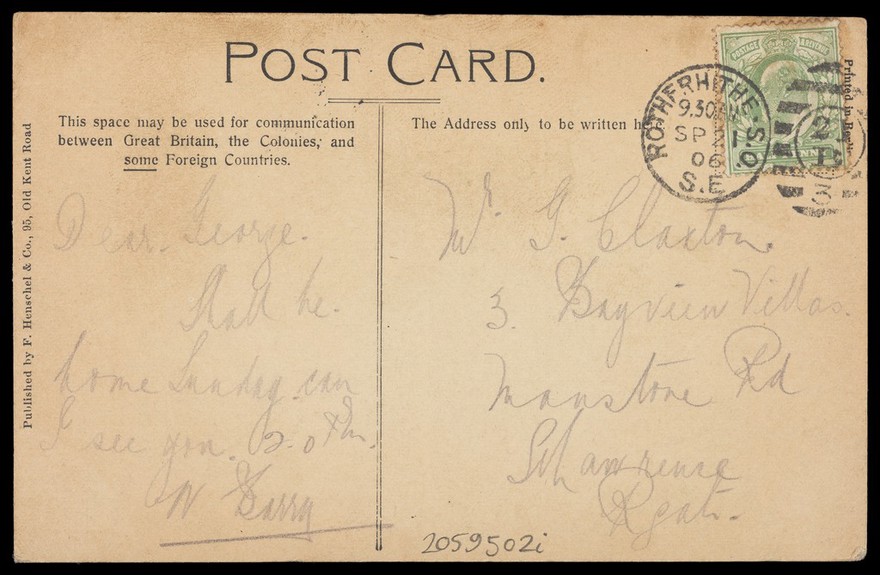 POST CARD.
This space may be used for communication
between Great Britain, the Colonies, and
some Foreign Countries.
The Address only to be written
Published by F. Henschel & Co., 95, Old Kent Road
Printed in
POSTAGE & REVENUE
ROTHERHITHE S.O.
9.30
SP
06
S.E
3
Dear George.
Shall be.
home Sunday can
I see you. 2.0 Pm.
W Barry
Mr. G. Claxton.
3. Bayview Villas.
Manstone Rd
St Lawrence
2059502i